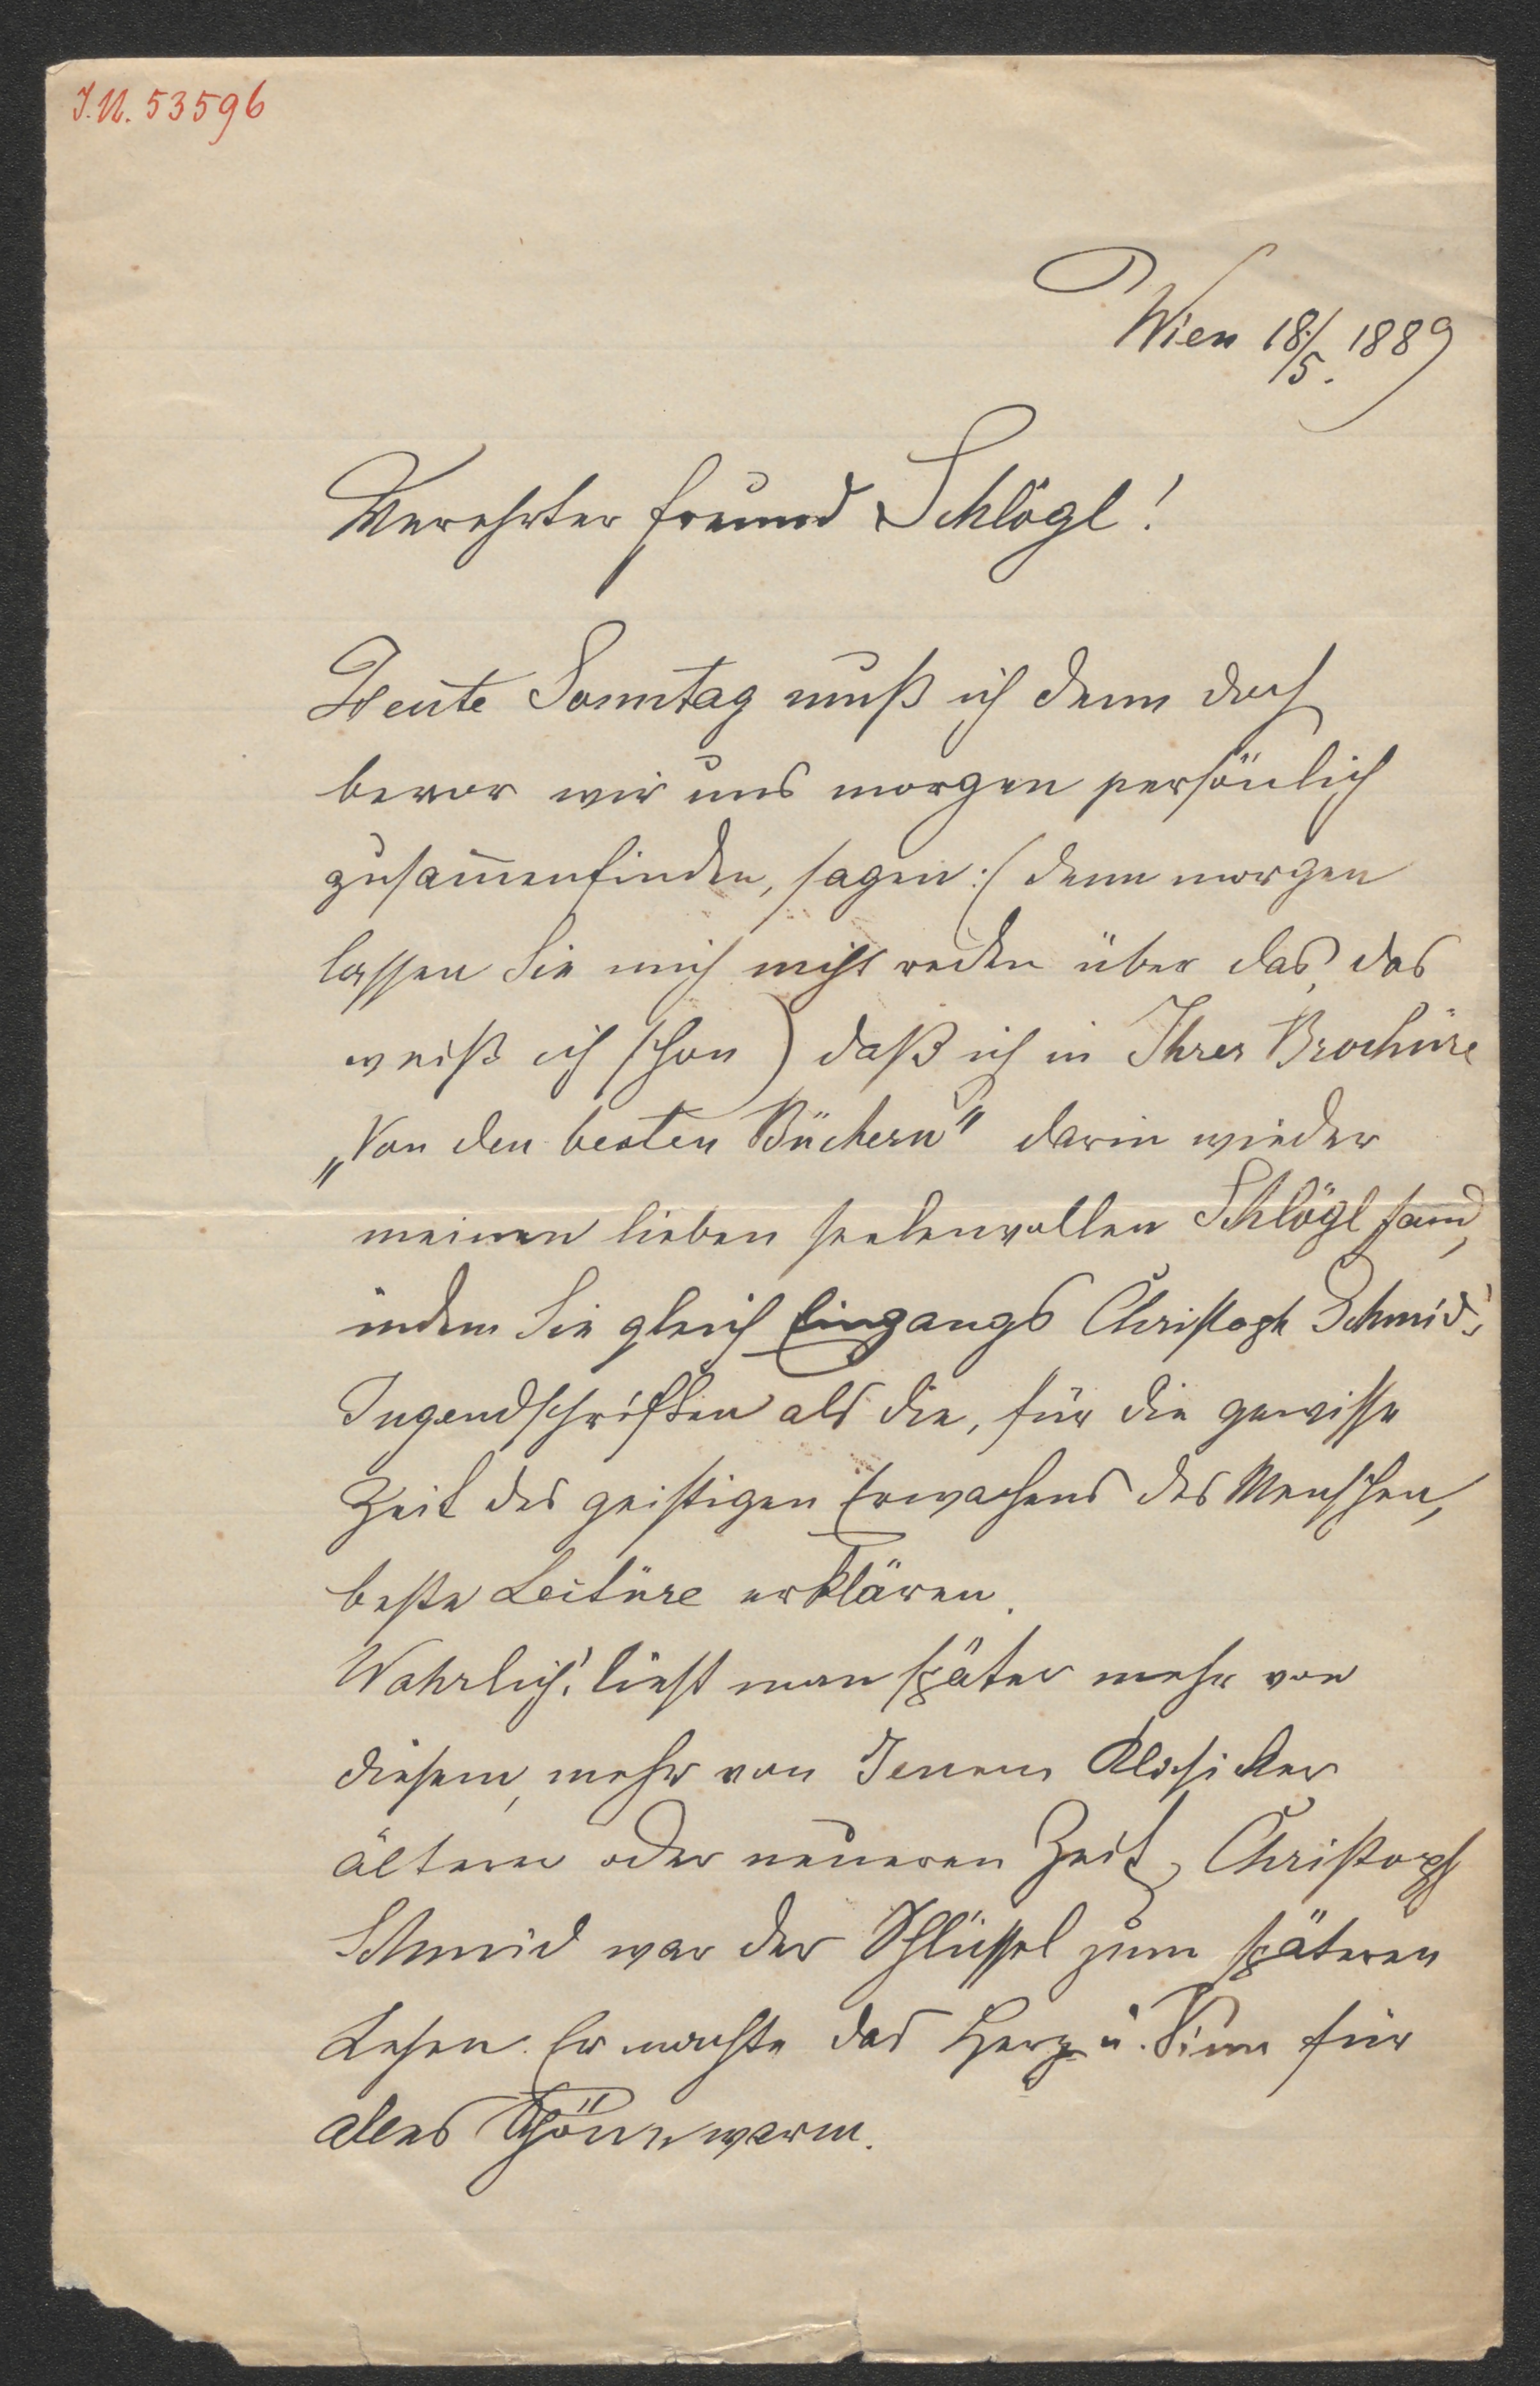 J.N. 53596
Wien 18./5. 1889
Verehrter Freund Schlögl!
Heute Sonntag muß ich denn doch
bevor wir uns morgen persönlich
zusam̄enfinden, sagen: (denn morgen
lassen Sie mich nicht reden über das, das
weiß ich schon) daß ich in Ihrer Brochüre
„Von den besten Büchern" darin wieder
meinen lieben seelenvollen Schlögl fand,
indem Sie gleich Eingangs Christoph Schmid's
Jugendschriften als die, für die gewisse
Zeit des geistigen Erwachens des Menschen,
beste Lectüre erklären.
Wahrlich! liest man später mehr von
diesem, mehr von Jenem Klassiker
älterer oder neueren Zeit, Christoph
Schmid war der Schlüssel zum späteren
Lesen. Er machte das Herz u. Sinn für
alles Schöne warm.